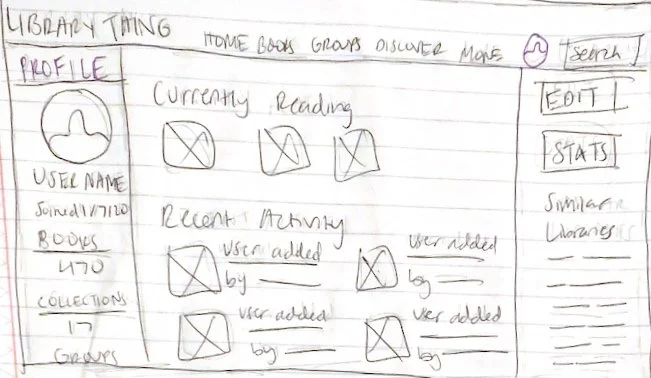 LIBRARY THING
HOME BOOKS GROUPS DISCOVER MORE
Search
PROFILE
USER NAME
Joined 1/7/20
BOOKS
470
COLLECTIONS
17
GROUPS
Currently Reading
Recent Activity
User added
by
User added
by
User added
by
User added
by
EDIT
STATS
Similar
Libraries